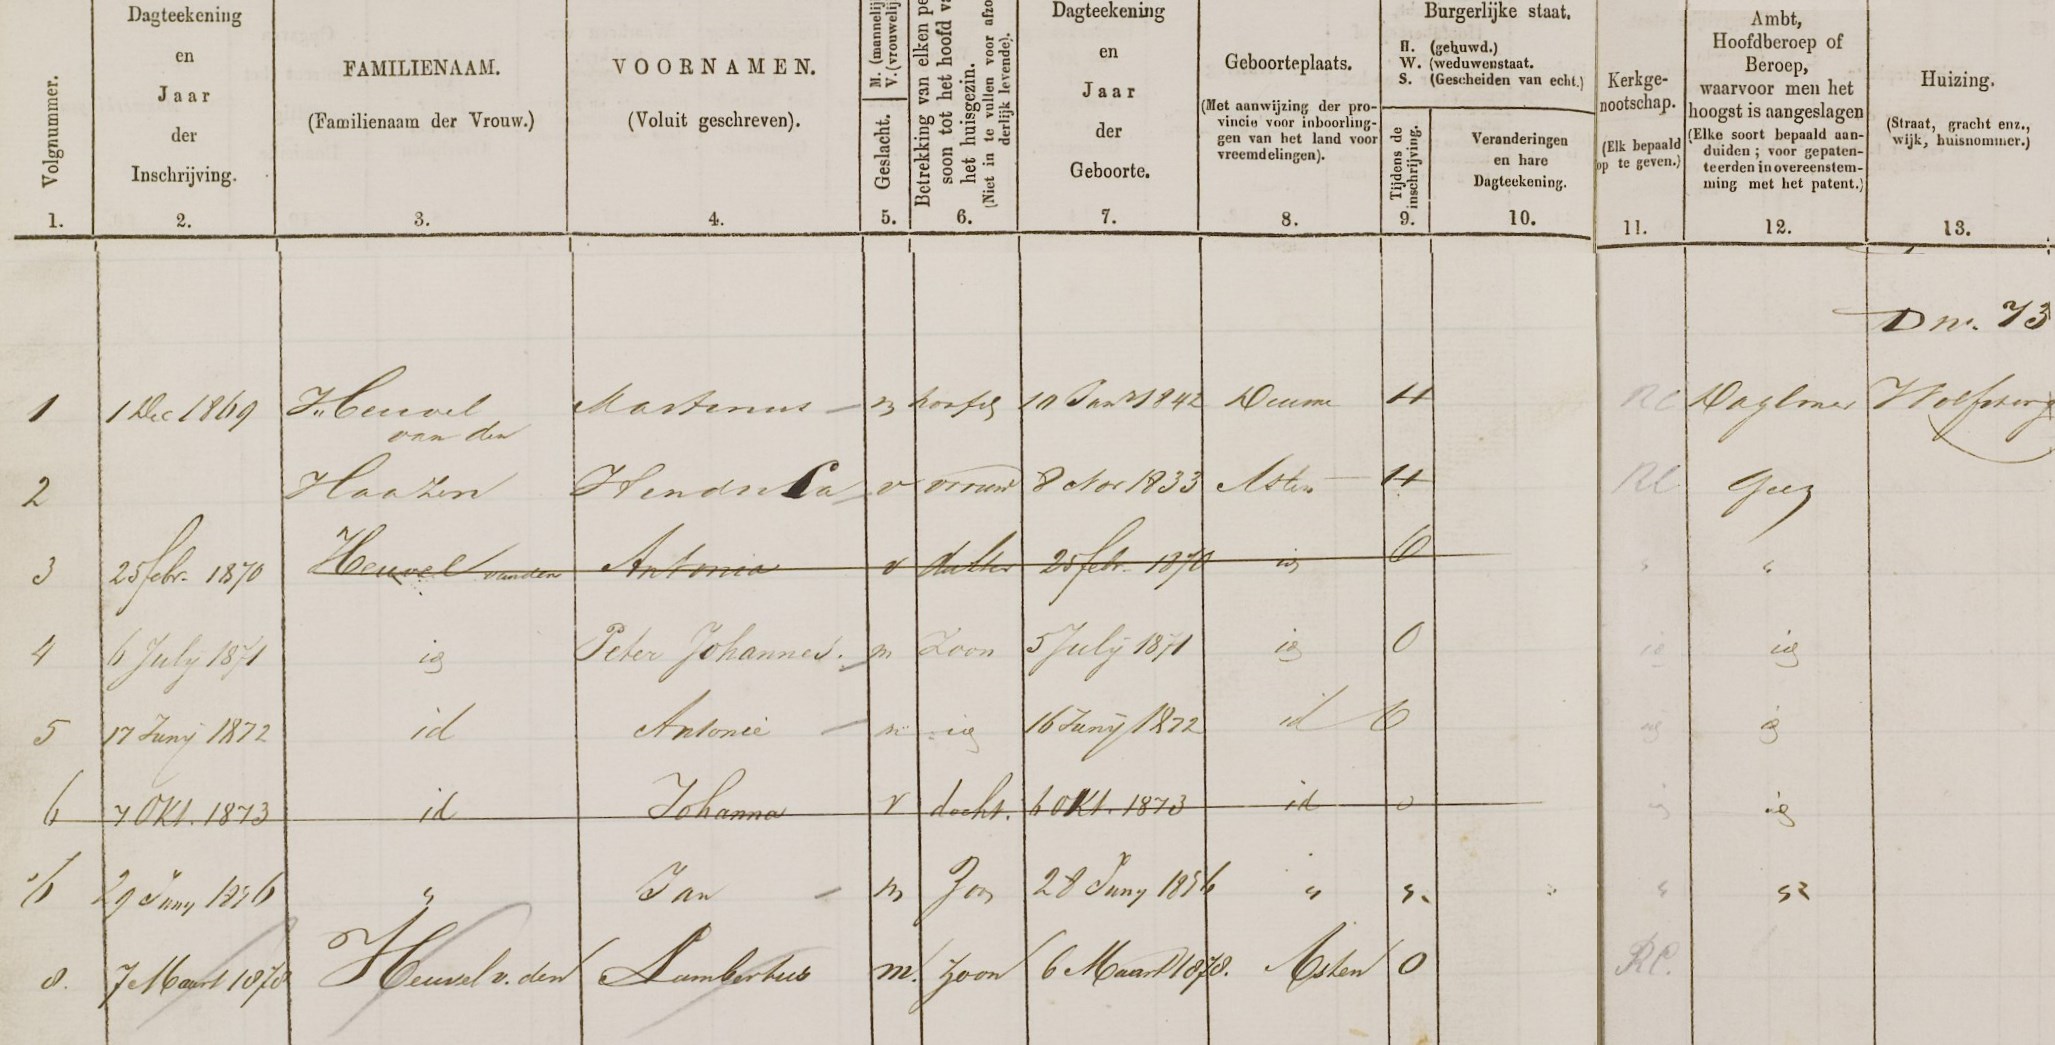 Volgnummer.
1.
Dagteekening
en
Jaar
der
Inschrijving.
2.
FAMILIENAAM.
(Familienaam der Vrouw.)
3.
VOORNAMEN.
(Voluit geschreven).
4.
Geslacht.
M. (mannelij
V. (vrouwelij
5.
Betrekking van elken pe
soon tot het hoofd va
het huisgezin.
(Niet in te vullen voor afzo
derlijk levende).
6.
Dagteekening
en
Jaar
der
Geboorte.
7.
Geboorteplaats.
(Met aanwijzing der pro-
vincie voor inboorlin-
gen van het land voor
vreemdelingen).
8.
Burgerlijke staat.
H. (gehuwd.)
W. (weduwenstaat.
S. (Gescheiden van echt.)
Tijdens de
inschrijving.
9.
Veranderingen
en hare
Dagteekening.
10.
Kerkge-
nootschap.
(Elk bepaald
op te geven.)
11.
Ambt,
Hoofdberoep of
Beroep,
waarvoor men het
hoogst is aangeslagen
(Elke soort bepaald aan-
duiden; voor gepaten-
teerden in overeenstem-
ming met het patent.)
12.
Huizing.
(Straat, gracht enz.,
wijk, huisnommer.)
13.
D nr. 73
1 1 Dec 1869 Heuvel Martinus m hoofd 10 Jan 1842 Deurne H RC Daglooner Wolfsberg
van den
2 Haazen Hendrica v vrouw 8 Nov 1833 Asten H RC Geen
3 25 febr. 1870 Heuvel vanden Antonia v dochter 25 febr. 1870 id O " "
4 6 July 1871 id Peter Johannes. m Zoon 5 July 1871 id O id id
5 17 Juny 1872 id Antonie m id 16 Juny 1872 id O id id
6 7 Okt. 1873 id Johanna v docht. 6 Okt. 1873 id O id id
6 29 Juny 1876 " Jan m Zoon 28 Juny 1876 " " " "
8. 7 Maart 1878 Heuvel v. den Lambertus m. zoon 6 Maart 1878. Asten O RC.